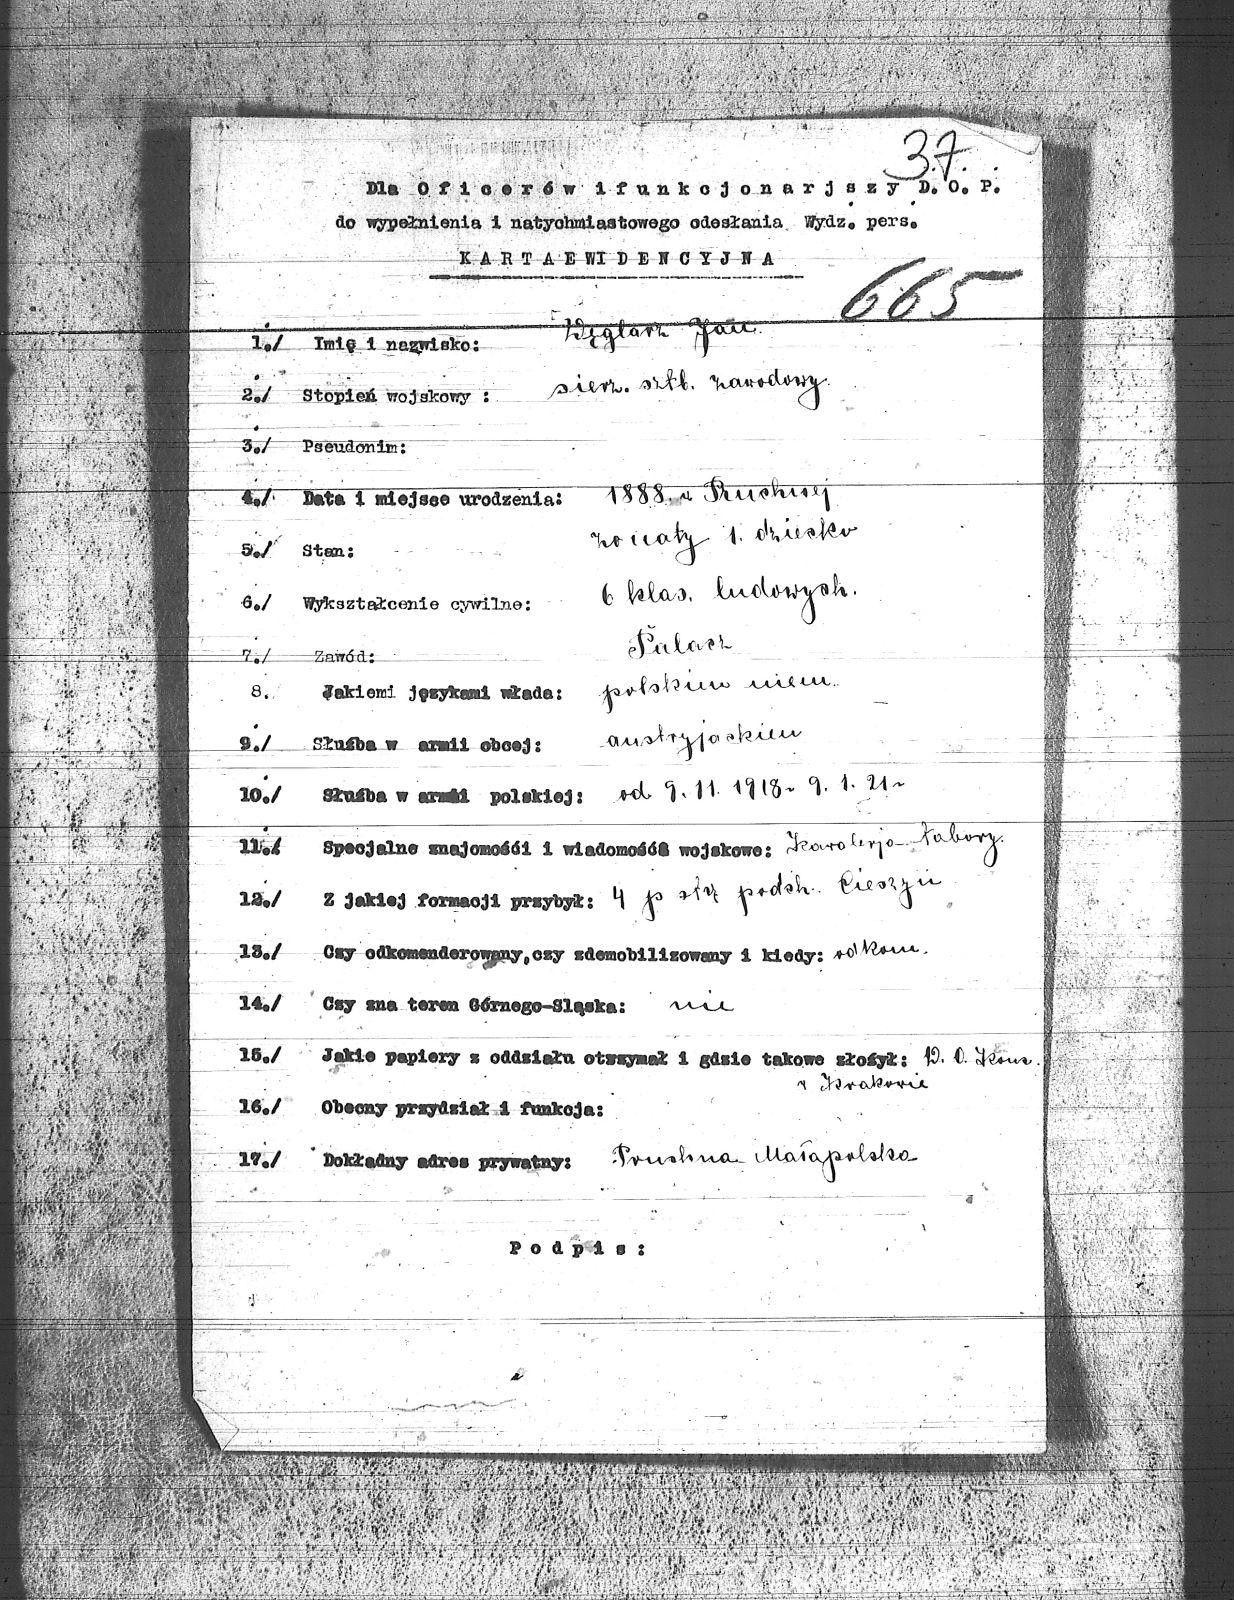 37.
Dla Oficerów i funkcjonarjszy D. O. P.
do wypełnienia i natychmiastowego odesłania Wydz. pers.
KARTA EWIDENCYJNA
665
1./ Imię i nazwisko: Węglarz Jan.
2./ Stopień wojskowy : sierż. sztb. zawodowy.
3./ Pseudonim:
4./ Data i miejsce urodzenia: 1888
5./ Stan: żonaty 1. dziecko
6./ Wykształcenie cywilne: 6 klas. ludowych.
7./ Zawód: Palacz
8. Jakiemi językami włada: polskim niem.
9./ Służba w armii obcej: austryjackiem
10./ Służba w armii polskiej: od 9. 11. 1918 9. 1. 21
11./ Specjalne znajomośći i wiadomośća wojskowe: Kawalerja Tabory.
12./ Z jakiej formacji przybył: 4 p podh. Cieszyń
13./ Czy odkomenderowany, czy zdemobilizowany i kiedy: odkom.
14./ Czy zna teren Górnego-Sląska: nie
15./ Jakie papiery z oddziału otrzymał i gdzie takowe złożył: D. O.
w Krakowie
16./ Obecny przydział i funkcja:
17./ Dokładny adres prywatny: Małapolska
Podpis: